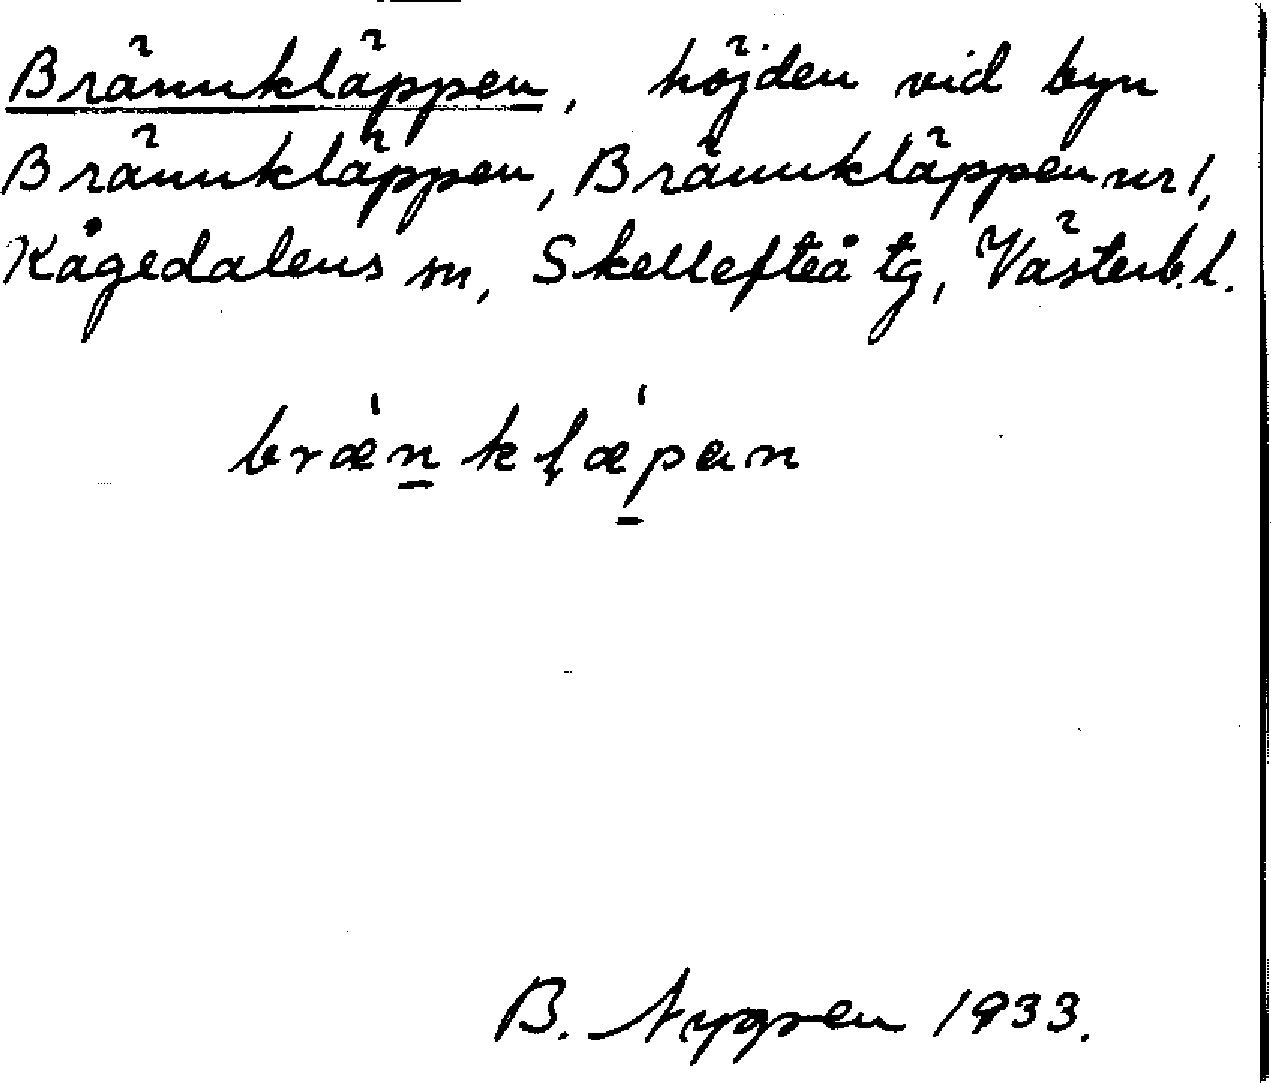 Brännkläppen, höjden vid byn
Brännkläppen, Brännkläppen nr 1,
Kågedalens sn, Skellefteå tg, Västerb. l.
bræ̀n̲ kl̥ǽp̲an
B. Nygren 1933.